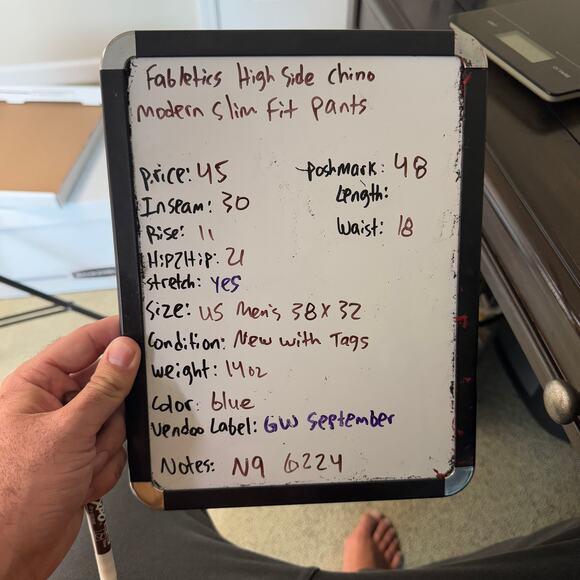 Fabletics High Side Chino
Modern Slim Fit Pants
Price: 45 Poshmark: 48
Inseam: 30 Length:
Rise: 11 Waist: 18
Hip2Hip: 21
Stretch: yes
Size: US Men's 38 x 32
Condition: New with Tags
Weight: 14oz
Color: blue
Vendoo Label: GW September
Notes: N9 6224